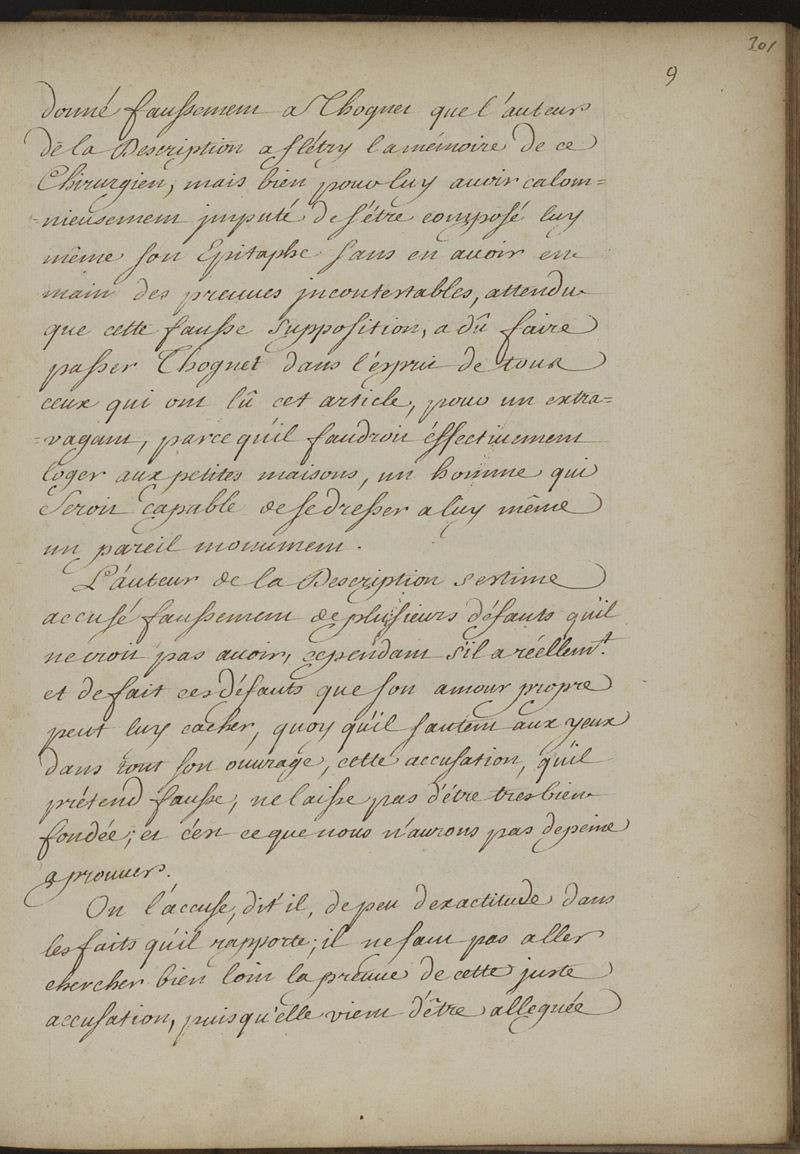 301
9
donné faussement a Thognet que l'auteur
de la Description a flétry la mémoire de ce
Chirurgien, mais bien pour luy avoir calom=
=nieusement jmputé de s'être composé luy
même son Epitaphe sans en avoir en
main des preuves jncontestables, attendu
que cette fausse supposition, a dû faire
passer Thognet dans l'esprit de tous
ceux qui ont lû cet article, pour un extra=
=vagant, parce qu'il faudroit éffectivement
loger aux petites maisons, un homme qui
seroit capable de se dresser a luy même
un pareil monument.
L'auteur de la Description s'estime
accusé faussement de plusieurs défauts qu'il
ne croit pas avoir, cependant s'il a réellemt.
et de fait ces défauts que son amour propre
peut luy cacher, quoy qu'il sautent aux yeux
dans tout son ouvrage, cette accusation, qu'il
prétend fausse, ne laisse pas d'être tres bien
fondée; et c'est ce que nous n'aurons pas de peine
a prouver.
On l'accuse, dit il, de peu d'exactitude dans
les faits qu'il rapporte; il ne faut pas aller
chercher bien loin la preuve de cette juste
accusation, puis qu'elle vient d'être alleguée